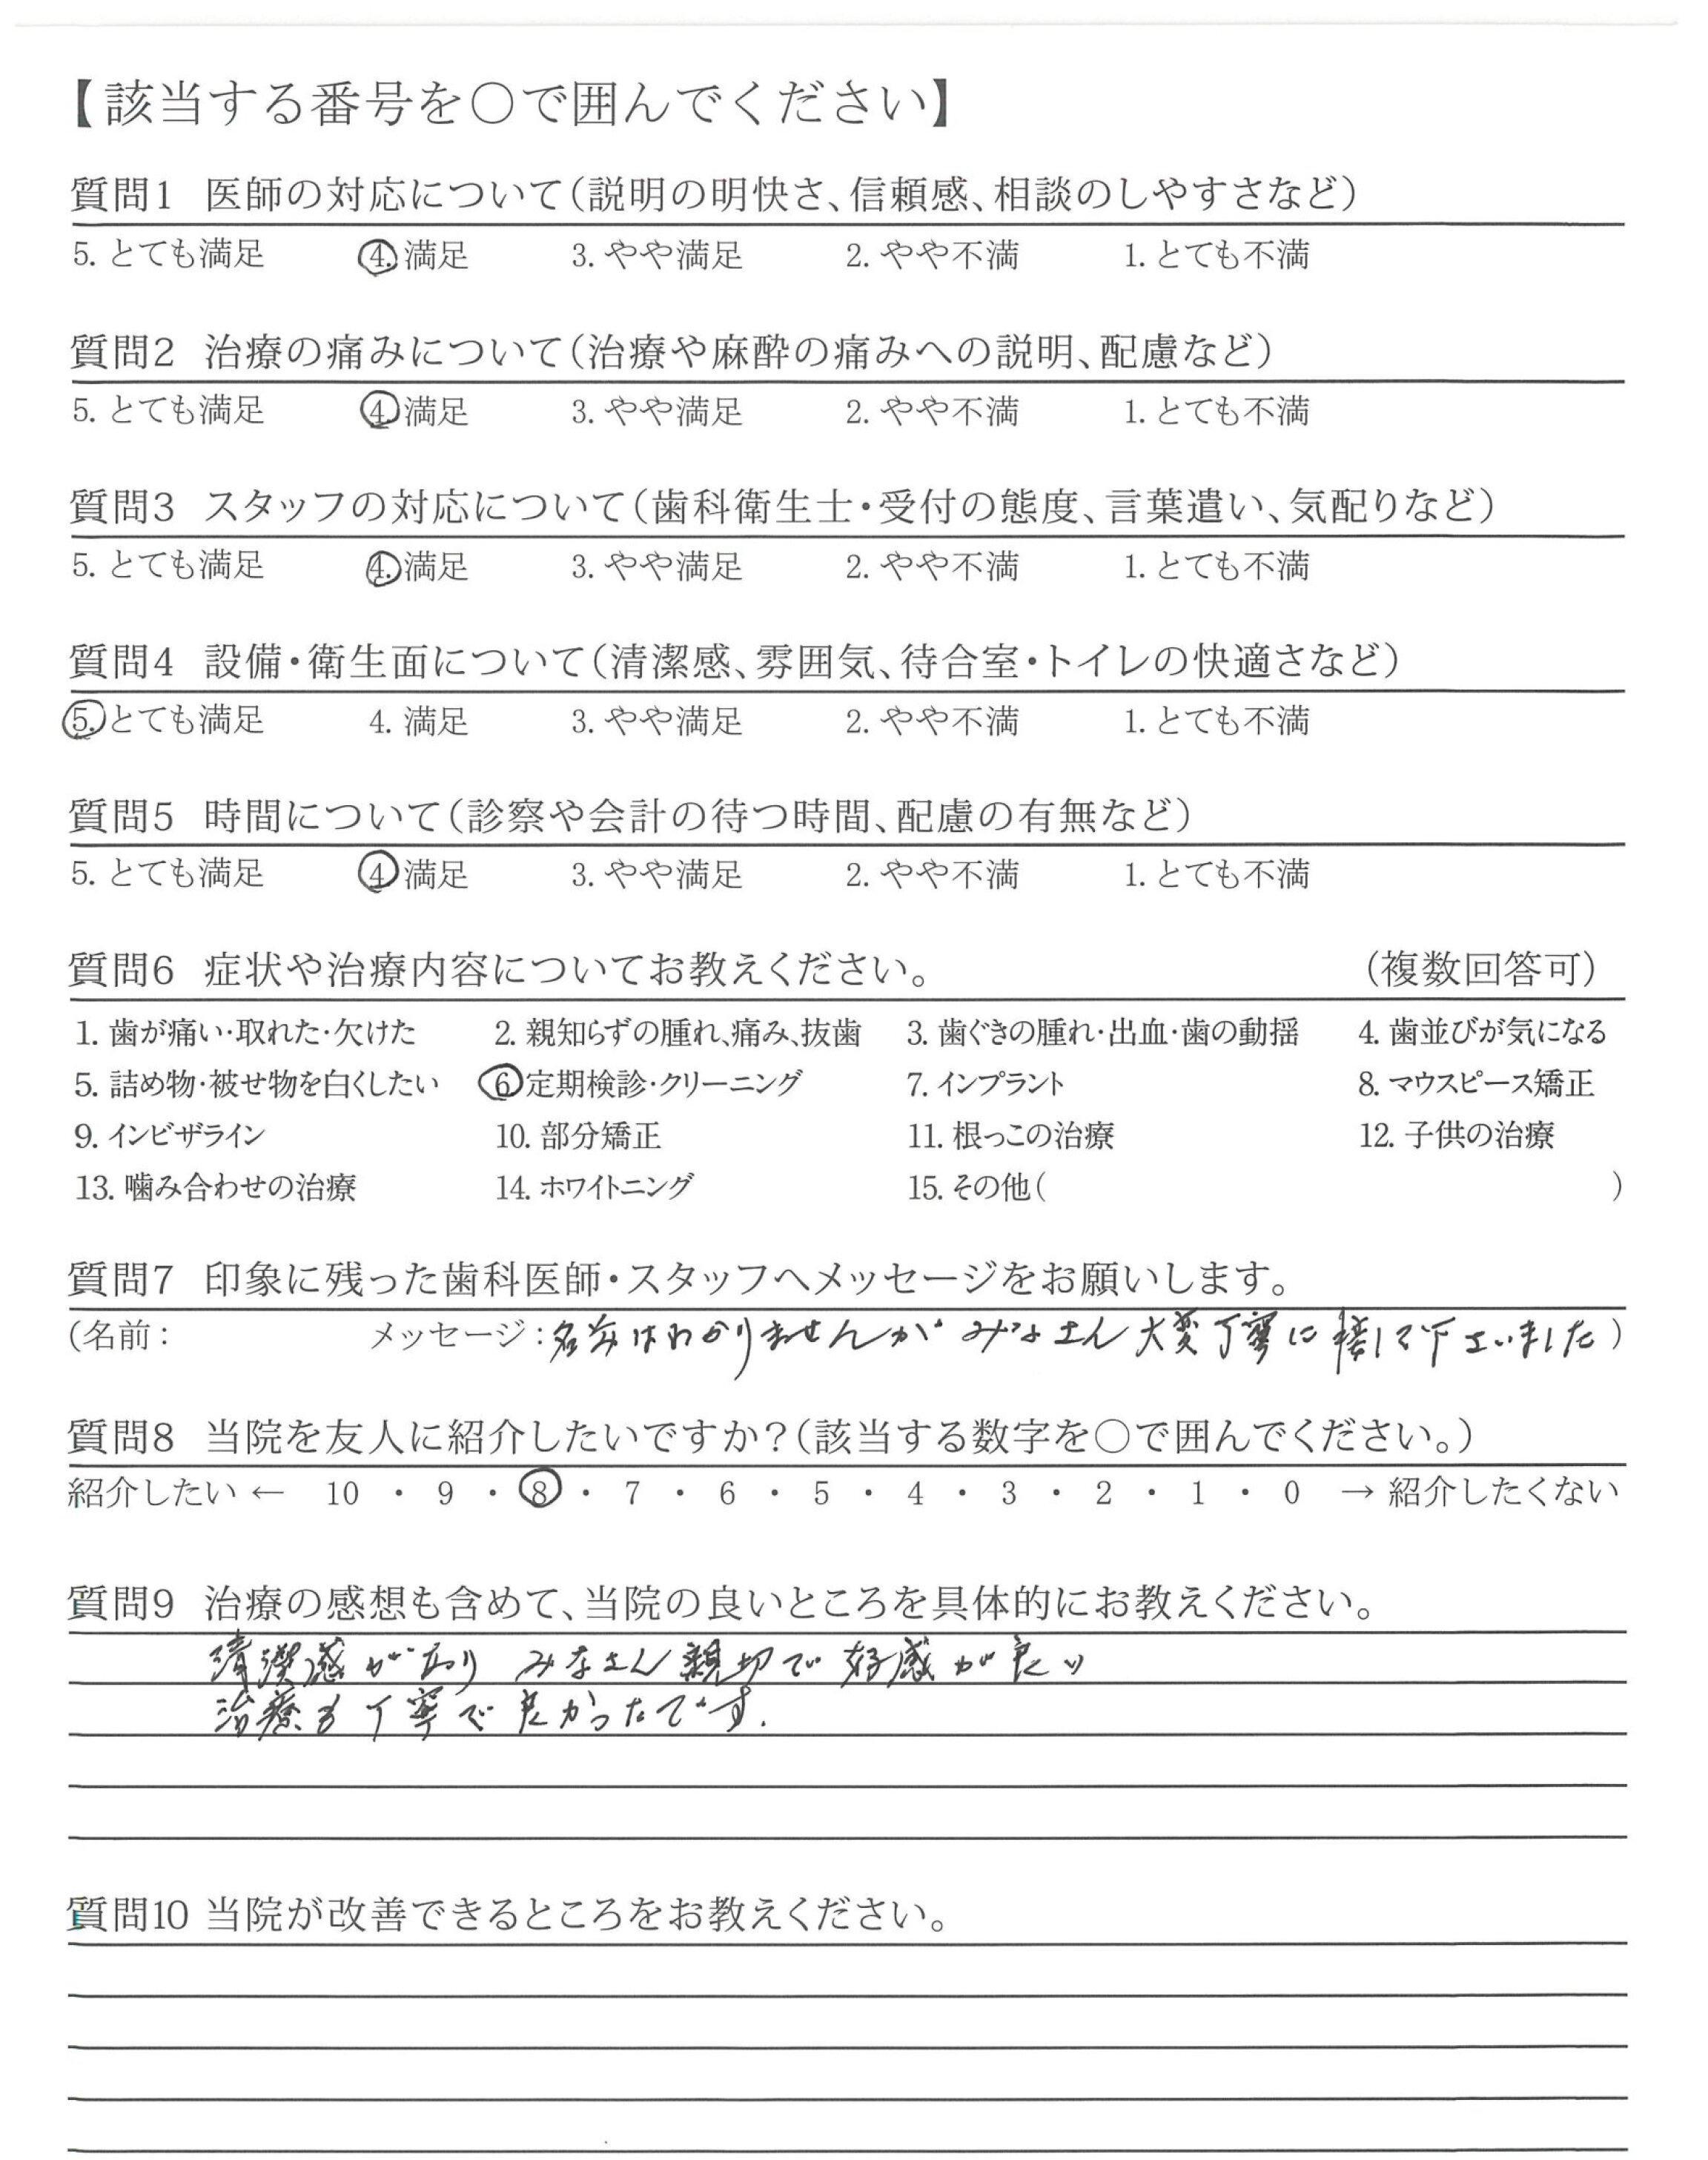 【該当する番号を〇で囲んでください】
質問1 医師の対応について(説明の明快さ、信頼感、相談のしやすさなど)
5. とても満足 4. 満足 3. やや満足 2. やや不満 1. とても不満
質問2 治療の痛みについて(治療や麻酔の痛みへの説明、配慮など)
5. とても満足 4. 満足 3. やや満足 2. やや不満 1. とても不満
質問3 スタッフの対応について(歯科衛生士・受付の態度、言葉遣い、気配りなど)
5. とても満足 4. 満足 3. やや満足 2. やや不満 1. とても不満
質問4 設備・衛生面について(清潔感、雰囲気、待合室・トイレの快適さなど)
5. とても満足 4. 満足 3. やや満足 2. やや不満 1. とても不満
質問5 時間について(診察や会計の待つ時間、配慮の有無など)
5. とても満足 4. 満足 3. やや満足 2. やや不満 1. とても不満
質問6 症状や治療内容についてお教えください。 (複数回答可)
1. 歯が痛い・取れた・欠けた 2. 親知らずの腫れ、痛み、抜歯 3. 歯ぐきの腫れ・出血・歯の動揺 4. 歯並びが気になる
5. 詰め物・被せ物を白くしたい 6 定期検診・クリーニング 7. インプラント 8. マウスピース矯正
9. インビザライン 10. 部分矯正 11. 根っこの治療 12. 子供の治療
13. 噛み合わせの治療 14. ホワイトニング 15. その他( )
質問7 印象に残った歯科医師・スタッフへメッセージをお願いします。
(名前: メッセージ:名前はわかりませんが みなさん 大変丁寧に 接して下さいました)
質問8 当院を友人に紹介したいですか?(該当する数字を〇で囲んでください。)
紹介したい ← 10 ・ 9 ・ 8 ・ 7 ・ 6 ・ 5 ・ 4 ・ 3 ・ 2 ・ 1 ・ 0 → 紹介したくない
質問9 治療の感想も含めて、当院の良いところを具体的にお教えください。
清潔感があり みなさん親切で 好感が良い
治療も丁寧で 良かったです.
質問10 当院が改善できるところをお教えください。